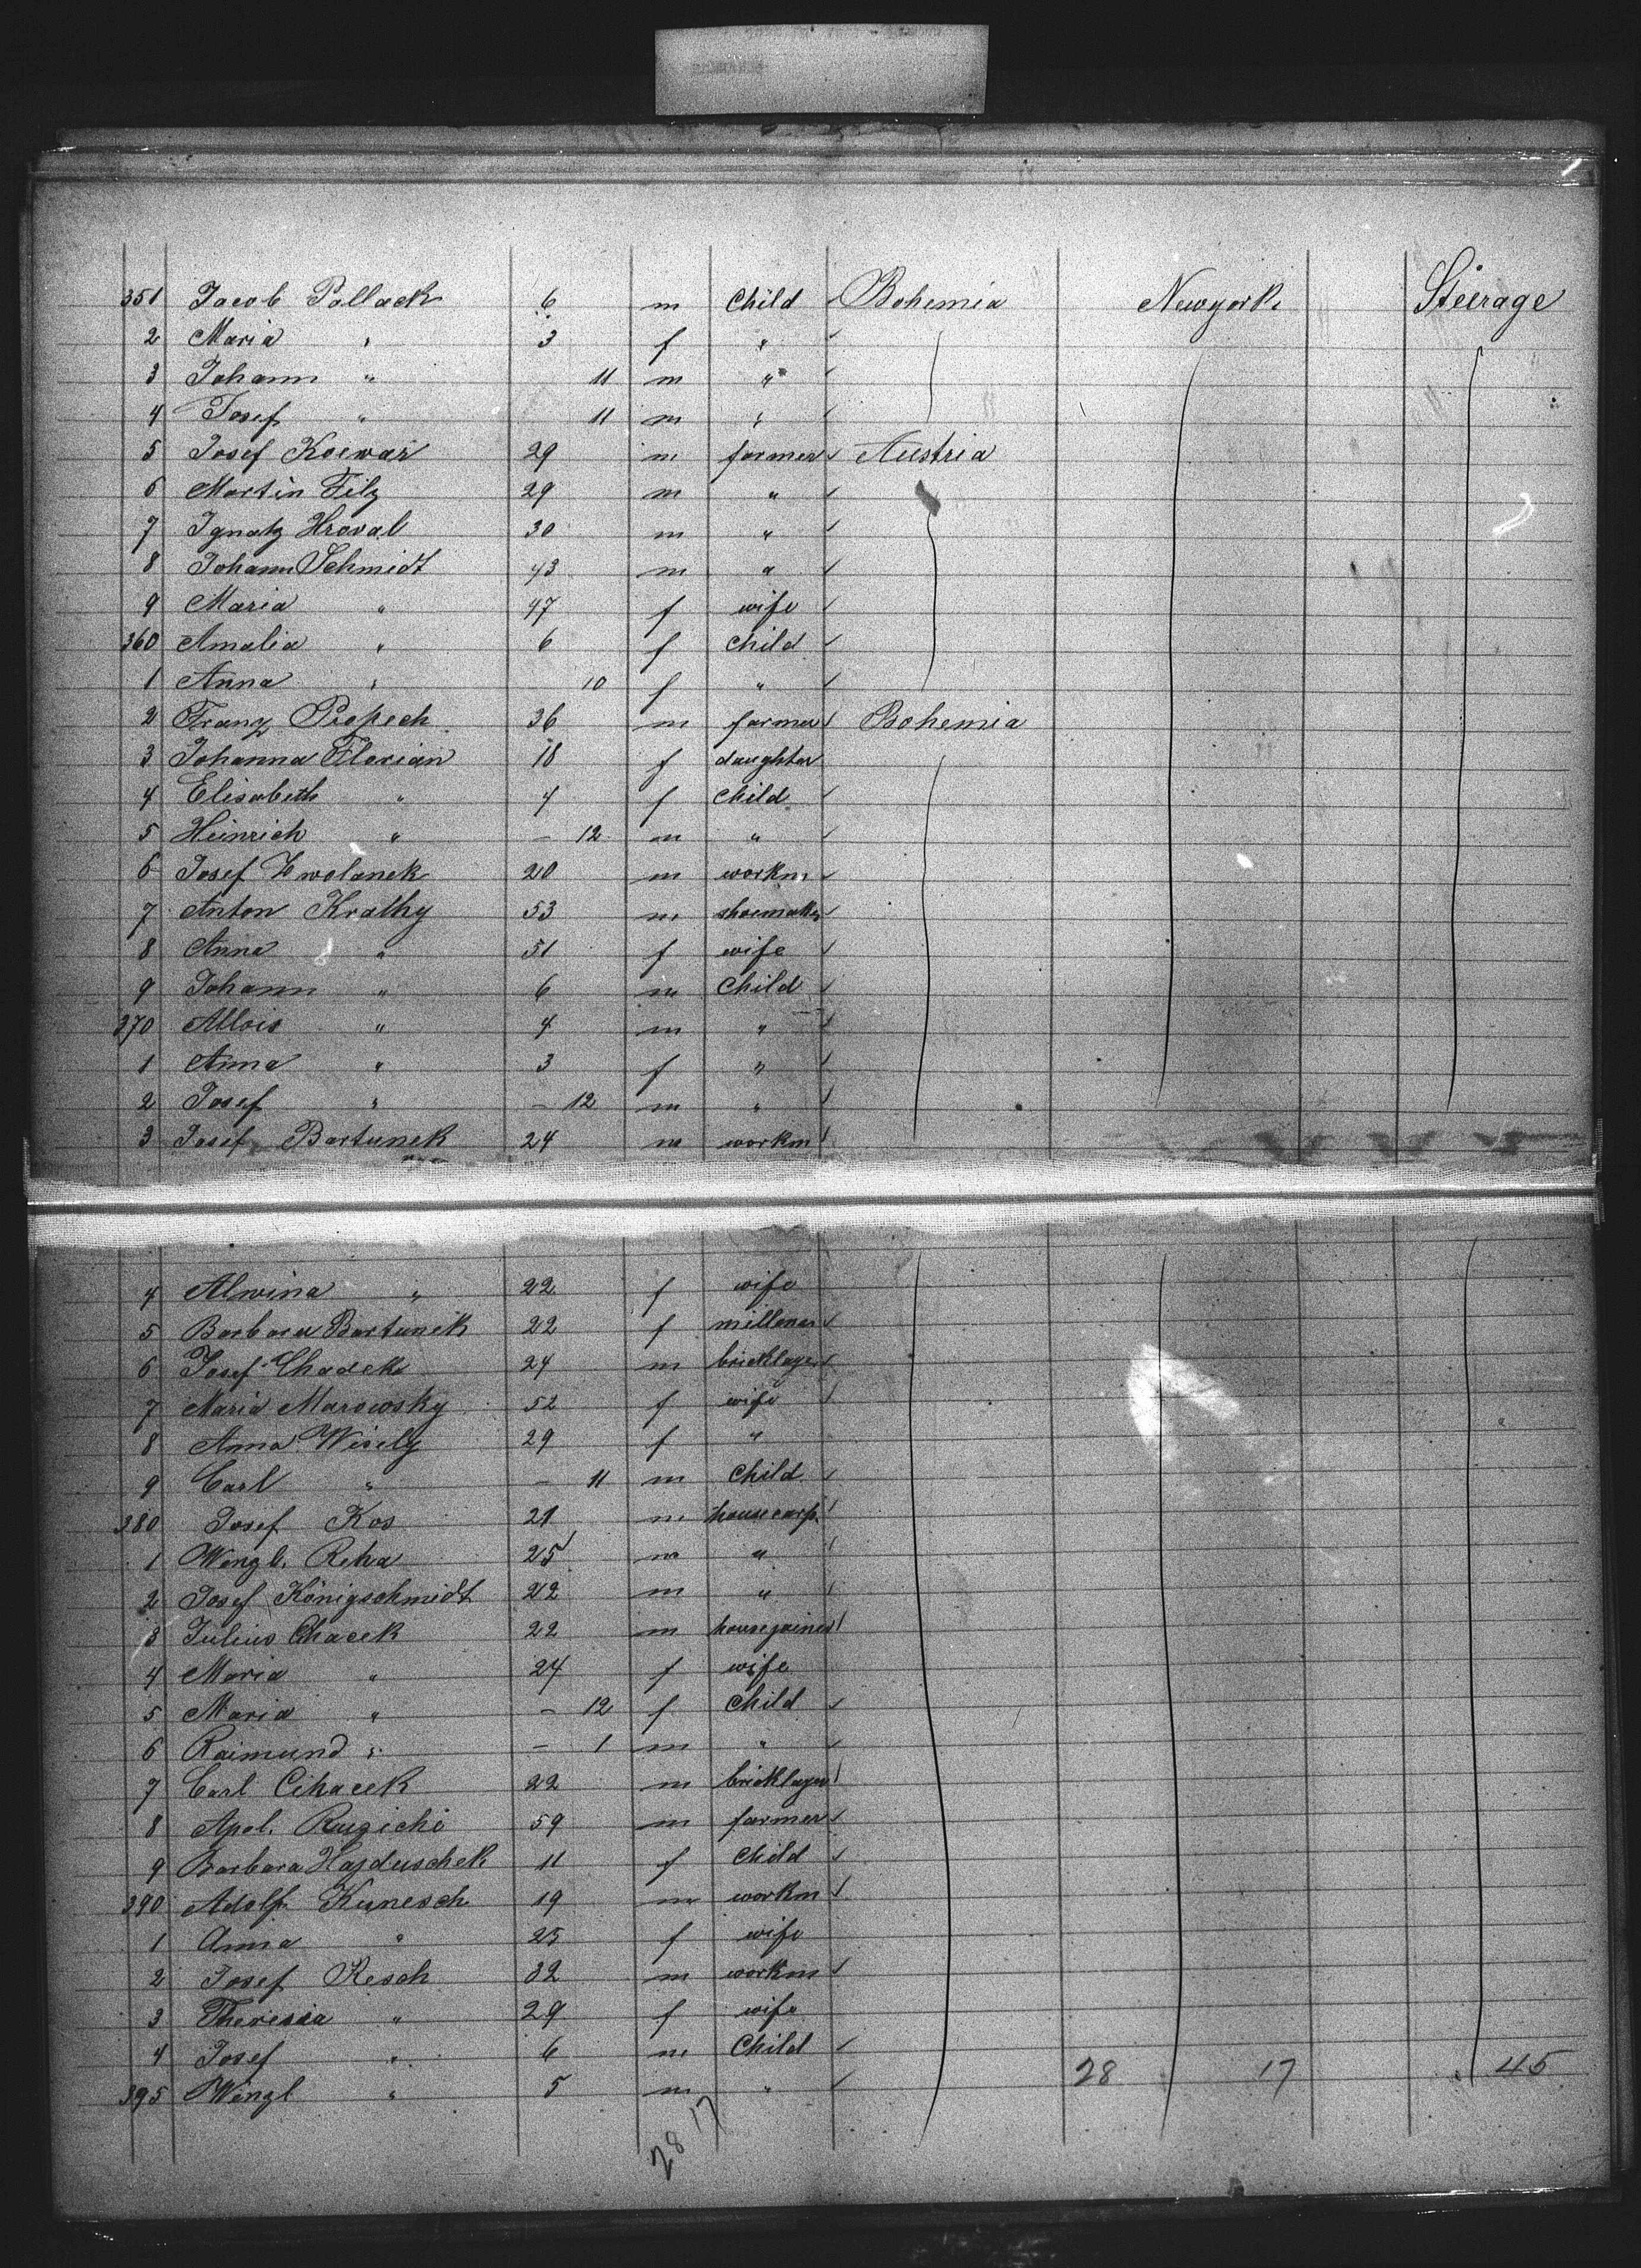 351 Jacob Pollack 6 m Child Bohemia Newyork Steerage
2 Maria " 3 f "
3 Johann " 11 m "
4 Josef " 11 m "
5 Josef Kocwar 29 m farmer Austria
6 Martin Filz 29 m "
7 Ignatz Hroval 30 m "
8 Johann Schmidt 43 m "
9 Maria " 47 f wife
360 Amalia " 6 f Child
1 Anna " 10 f "
2 Franz 36 m farmer Bohemia
3 Johanna Florian 18 f daughter
4 Elisabeth " 4 f Child
5 Heinrich " – 12 m "
6 Josef Zwolanek 20 m workm
7 Anton Krathy 53 m shoemaker
8 Anna " 51 f wife
9 Johann " 6 m Child
370 Allois " 4 m "
1 Anna " 3 f "
2 Josef " – 12 m "
3 Josef Bartunek 24 m workm
4 Alwina " 22 f wife
5 Barbara Bartunek 22 f
6 Josef Chadek 24 m bricklayer
7 Maria Marowsky 52 f wife
8 Anna Wesely 29 f "
9 Carl " – 11 m Child
380 Josef Kos 21 m housecarp.
1 Wenzl. Reha 25 m "
2 Josef Königschmidt 22 m "
3 Julius Chacek 22 m housejoiner
4 Maria " 24 f wife
5 Maria " – 12 f Child
6 Raimund " – 1 m "
7 Carl Cihacek 22 m bricklayer
8 Apol. Ruzichi 59 m farmer
9 Barbara Hajduschek 11 f Child
390 Adolf Kunesch 19 m workm
1 Anna " 25 f wife
2 Josef Resch 32 m workm
3 Theresia " 29 f wife
4 Josef " 6 m Child
395 Wenzl " 5 m "
28 17 45
28 17